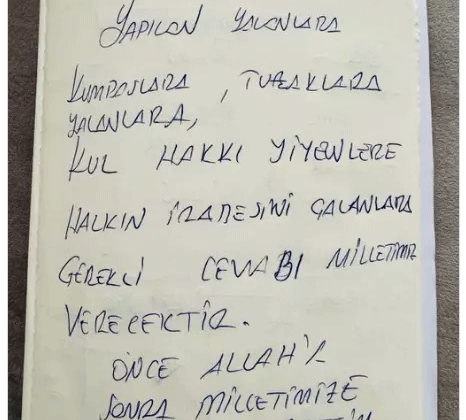 YAPILAN YALANLARA
KUMPASLARA, TUZAKLARA
YALANLARA,
KUL HAKKI YİYENLERE
HALKIN İRADESİNİ ÇALANLARA
GEREKLİ CEVABI MİLLETİMİZ
VERECEKTİR.
ÖNCE ALLAH'A
SONRA MİLLETİMİZE